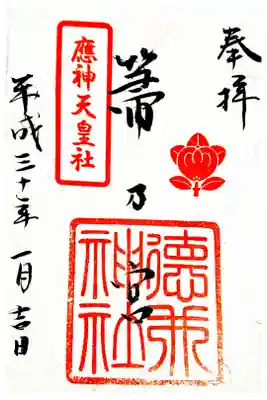 奉拝
箒乃宮
應神天皇社
德
神社
平成三十年 一月吉日